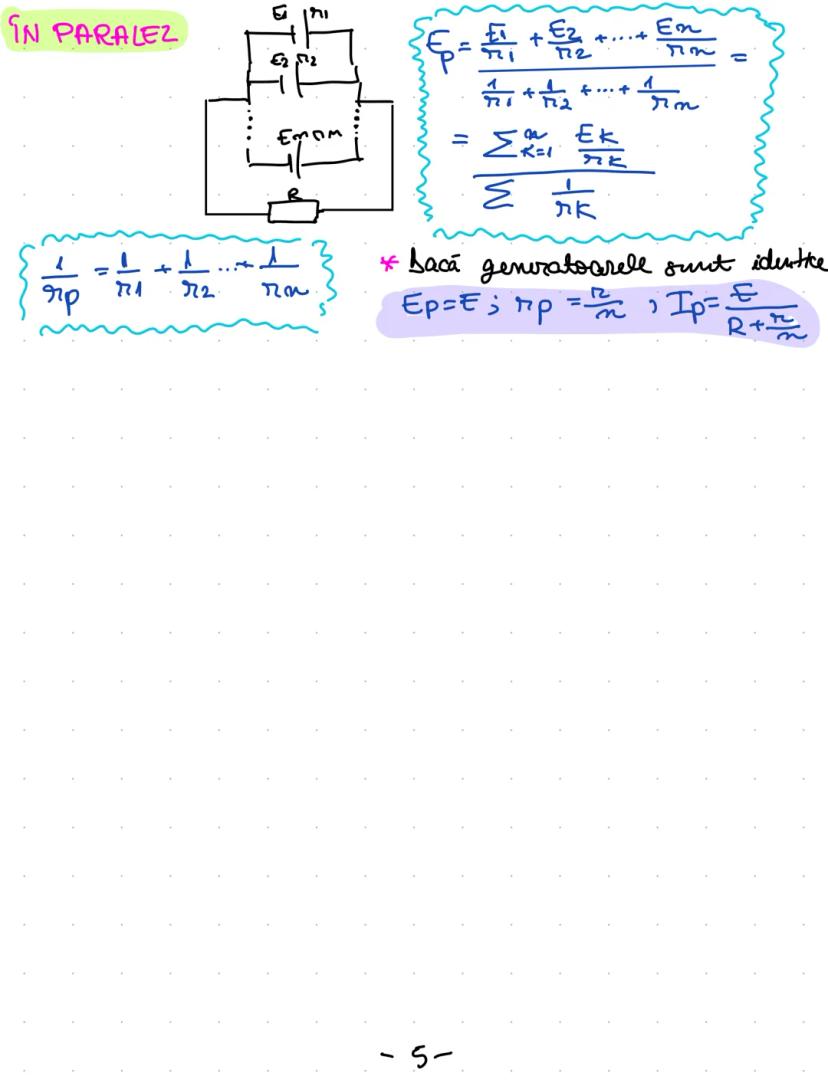 ÎN PARALEL
E1 r1
E2 r2
En rn
R
Ep = (E1/r1 + E2/r2 + ... + En/rn) / (1/r1 + 1/r2 + ... + 1/rn) =
= (∑ⁿk=1 Ek/rk) / (∑ 1/rk)
1/rp = 1/r1 + 1/r2 ... + 1/rn
* Dacă generatoarele sunt identice
Ep=E ; rp = r/n , Ip = E/(R + r/n)
- 5 -